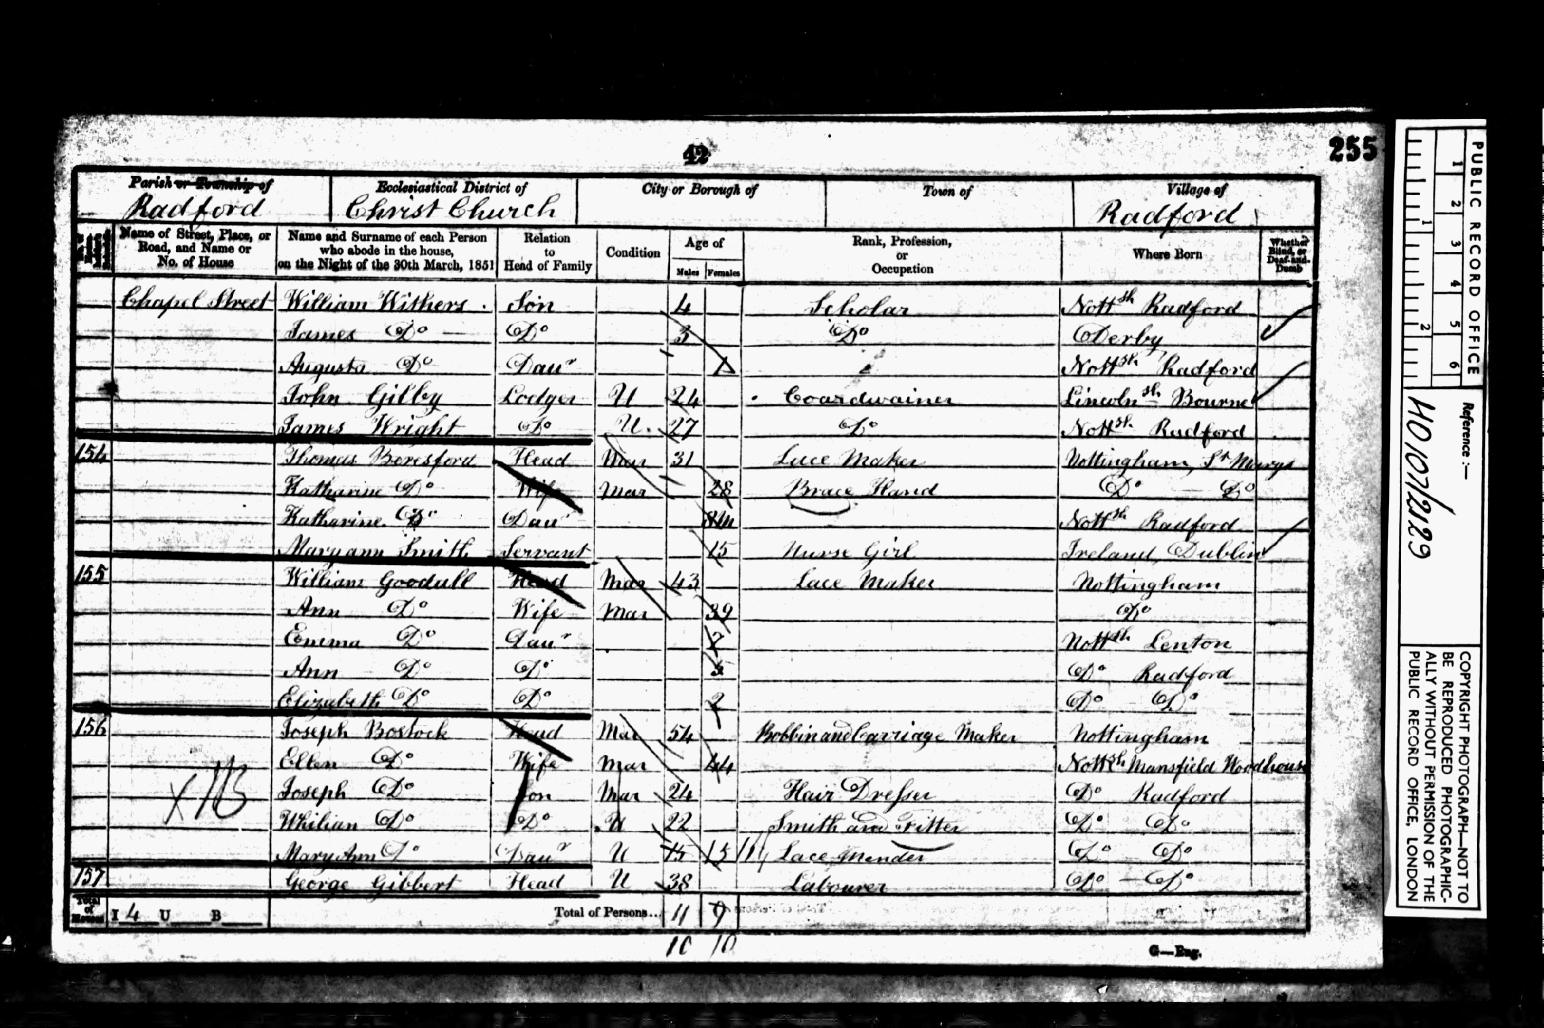 42
255
Parish or Township of
Radford
Ecclesiastical District of
Christ Church
City or Borough of
Town of
Village of
Radford
Name of Street, Place, or Road, and Name or No. of House
Name and Surname of each Person who abode in the house, on the Night of the 30th March, 1851
Relation to Head of Family
Condition
Age of
Males Females
Rank, Profession, or Occupation
Where Born
Whether Blind, or Deaf-and-Dumb
Chapel Street William Withers Son 4 Scholar Nott sh Radford
James Do Do 3 Do Derby
Augusta Do Daur 1 Nott sh Radford
John Gilby Lodger U 24 Coardwainer Lincoln sh Bourne
James Wright Do U 27 Do Nott sh Radford
154 Thomas Beresford Head Mar 31 Lace Maker Nottingham, St Marys
Katharine Do Wife Mar 28 Brace Hand Do Do
Katharine Do Daur Nott sh Radford
Maryann Smith Servant 15 Nurse Girl Ireland, Dublin
155 William Goodull Head Mar 43 Lace Maker Nottingham
Ann Do Wife Mar 39 Do
Emma Do Daur 7 Nott sh Lenton
Ann Do Do Do Radford
Elizabeth Do Do 2 Do Do
156 Joseph Bostock Head Mar 54 Bobbin and Carriage Maker Nottingham
Ellen Do Wife Mar 44 Nott sh Mansfield Woodhouse
Joseph Do Son Mar 24 Hair Dresser Do Radford
Whilian Do Do U 22 Smith and Fitter Do Do
Mary Ann Do Daur U 15 15 Lace Mender Do Do
157 George Gibbert Head U 38 Labourer Do Do
Total of Houses I 4 U B Total of Persons... 11 9
10 10
G—Eng.
PUBLIC RECORD OFFICE
1 2 3 4 5 6
1 2
Reference:—
HO107/2129
COPYRIGHT PHOTOGRAPH—NOT TO
BE REPRODUCED PHOTOGRAPHIC-
ALLY WITHOUT PERMISSION OF THE
PUBLIC RECORD OFFICE, LONDON